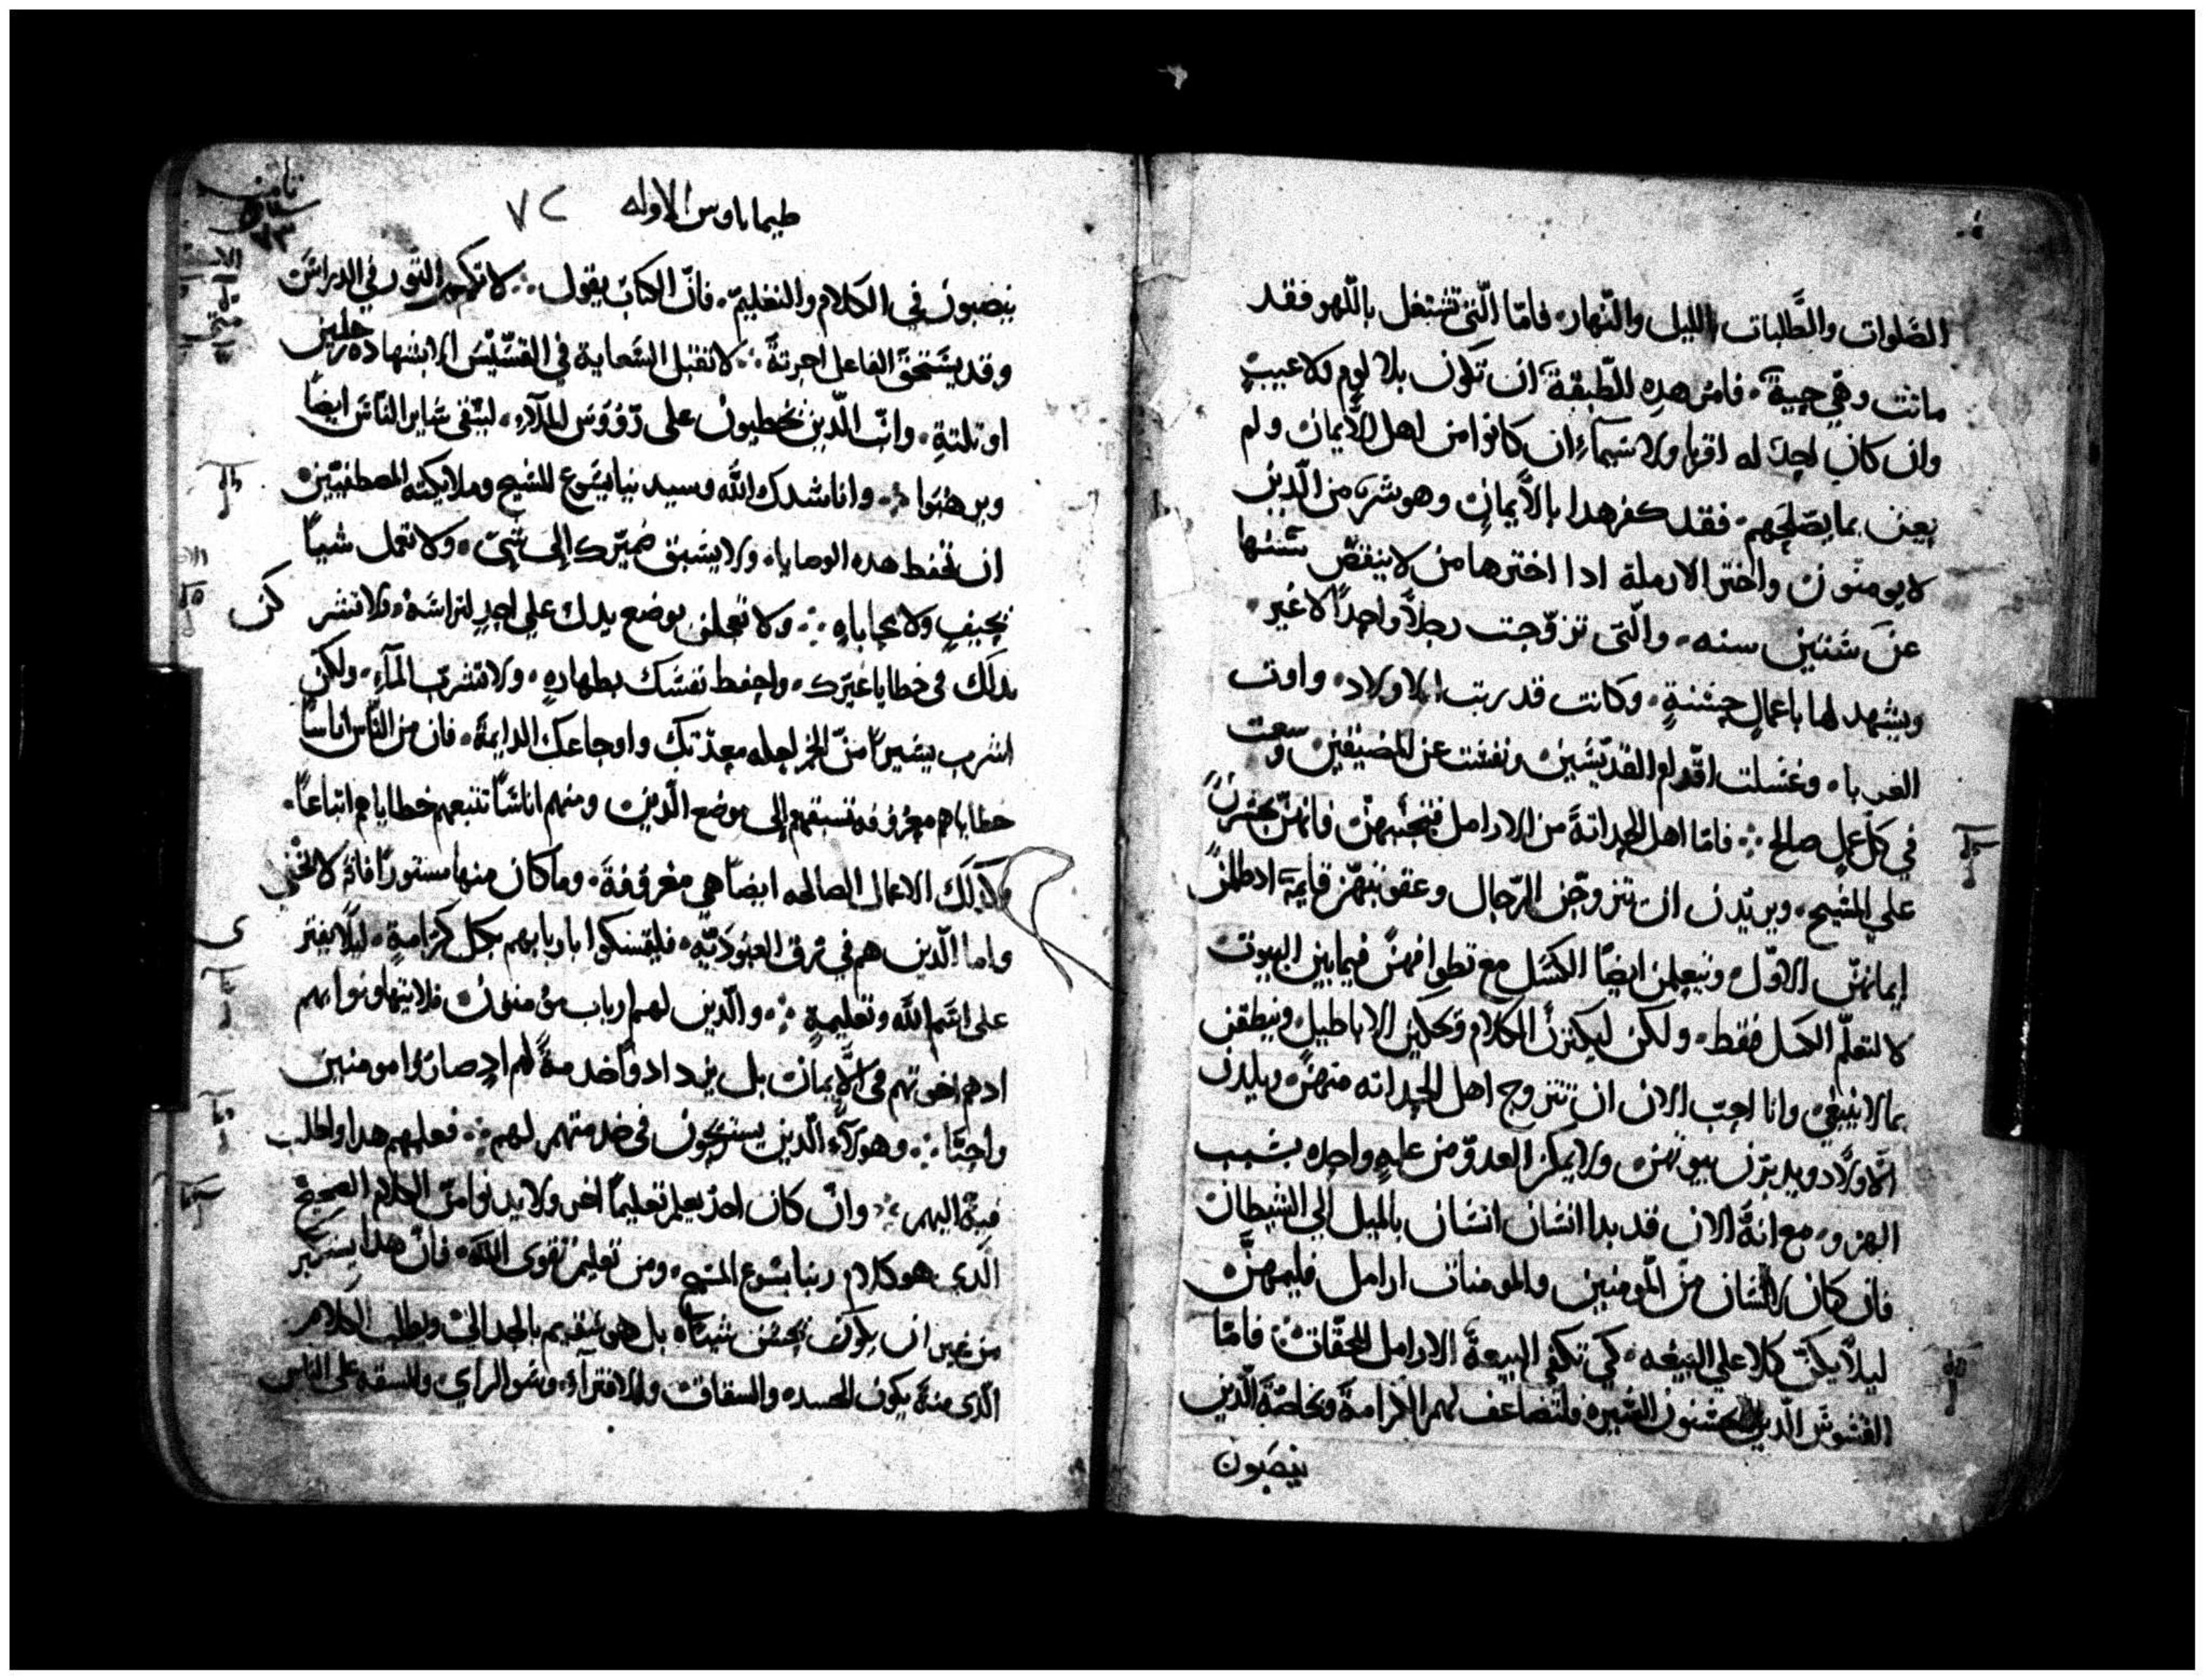 الصلوات والطلبات بالليل والنهار. فامّا الّتي تشتغل باللهو فقد
ماتت وهي حيية. فامر هده الطبقة ان تكون بلا لوم ولا عيب
وان كان احد له اقربا ولا سيماء ان كانوا من اهل الايمان ولم
يعن بما يصلحهم. فقد كفر هدا بالايمان وهو شر من الّدين
لا يومنون واختر الارملة ادا اخترها من لا ينقص سنها
عن ستين سنه. والّتى تزوّجت رجلاً واحداً لا غير.
ويشهد لها باعمالٍ حسنةٍ. وكانت قد ربت الاولاد. واوت
الغربا. وغسلت اقدام القديسين ونفست عن المضيقين وسعت
في كل عمل صالح ∴ فامّا اهل الحداثة من الارامل فتجنبهن فانهن يجسرن
على المسيح. ويريدن ان تتزوجن الرّجال وعقوبتهن قايمة اد ظلمن
إيمانهن الاوّل. ويتعلمن ايضاً الكسل مع تطوافهن فيما بين البيوت
لا لتعلّم الكسل فقط. ولكن ليكثرن الكلام وتحكين الاباطيل وينطقن
بما لا ينبغي وانا احبّ الان ان تتزوج اهل الحداثه منهن. ويلدن
الاولاد ويدبرن بيوتهن. ولا يمكن العدوّ من علةٍ واحده بسبب
الهزو. مع انهُ الان قد بدا انسان انسان بالميل الي الشيطان
فان كان لانسان من المومنين والمومنات ارامل فليمهنّ
ليلاً يكنّ كلا علي البيعه. كي تكفي البيعة الارامل المحقّات. فامّا
القسوس الّدين يحسنون السيره فلتضاعف لهم الكرامة وبخاصّة الّدين
ينصبون
طيماتاوس الاوله ٧٢
ينصبون في الكلام والتعليم. فانّ الكتاب يقول ∴ لا تكم التور في الدراس
وقد يستحق الفاعل اجرتهُ ∴ لا تقبل السعاية في القسّيس الا بشهادة رجلين
او ثلثةٍ. وانّب الّدين يخطيون على رؤوس الملاء. ليتقى ساير الناس ايضاً
ويرهبوا ∴ وانا شدك الله وسيدنا يسوع المسيح وملايكته المصطفيين
ان تحفظ هده الوصايا. ولا يسبق ضميرك إلى شيّ. ولا تعمل شياً
بحيفٍ ولا محاباهٍ ∴ ولا تعجلن بوضع يدك علي احدٍ لتراسهُ. ولا تشر
بدلك في خطايا غيرك. واحفظ نفسك بطهارهٍ. ولا تشرب الماء. ولكن
اشرب يسيراً من الخمر لحله معدتك واوجاعك الدايمة. فان من النّاس اناساً
خطاياهم معروفه تسبقهم إلى موضع الّدين ومنهم اناساً تتبعهم خطاياهم اتباعاً.
وكدلك الاعمال الصالحه ايضاً هي معروفة. وما كان منها مستوراً فانهُ لا تخفي
واما الّدين هم في رق العبوديّه. فليتمسكوا باربابهم بكل كرامةٍ. ليلا يفتر
على اسم الله وتعليمهٍ ∴ والّدين لهم ارباب مومنون فلا يتهاونوا بهم
اد هم اخوتهم في الايمان بل يزدادوا خدمةً لهم اد صاروا مومنين
واحبّا ∴ وهولاء الّدين يستريحون في خدمتهم لهم ∴ فعلمهم هدا واطلب
فيه اليهم ∴ وان كان احد يعلم تعليماً اخر ولا يدنوا من الكلام الصحيح
الّدى هو كلام ربنا يسوع المسيح. ومن تعليم تقوى الله. فانّ هدا يستكبر
من غير ان يكون يحسن شياً. بل هو سقيم بالجدال وطلب الكلام
الّدى منهُ يكون الحسده والشقاق والافتراء. وسو الراي. والسقه على الناس